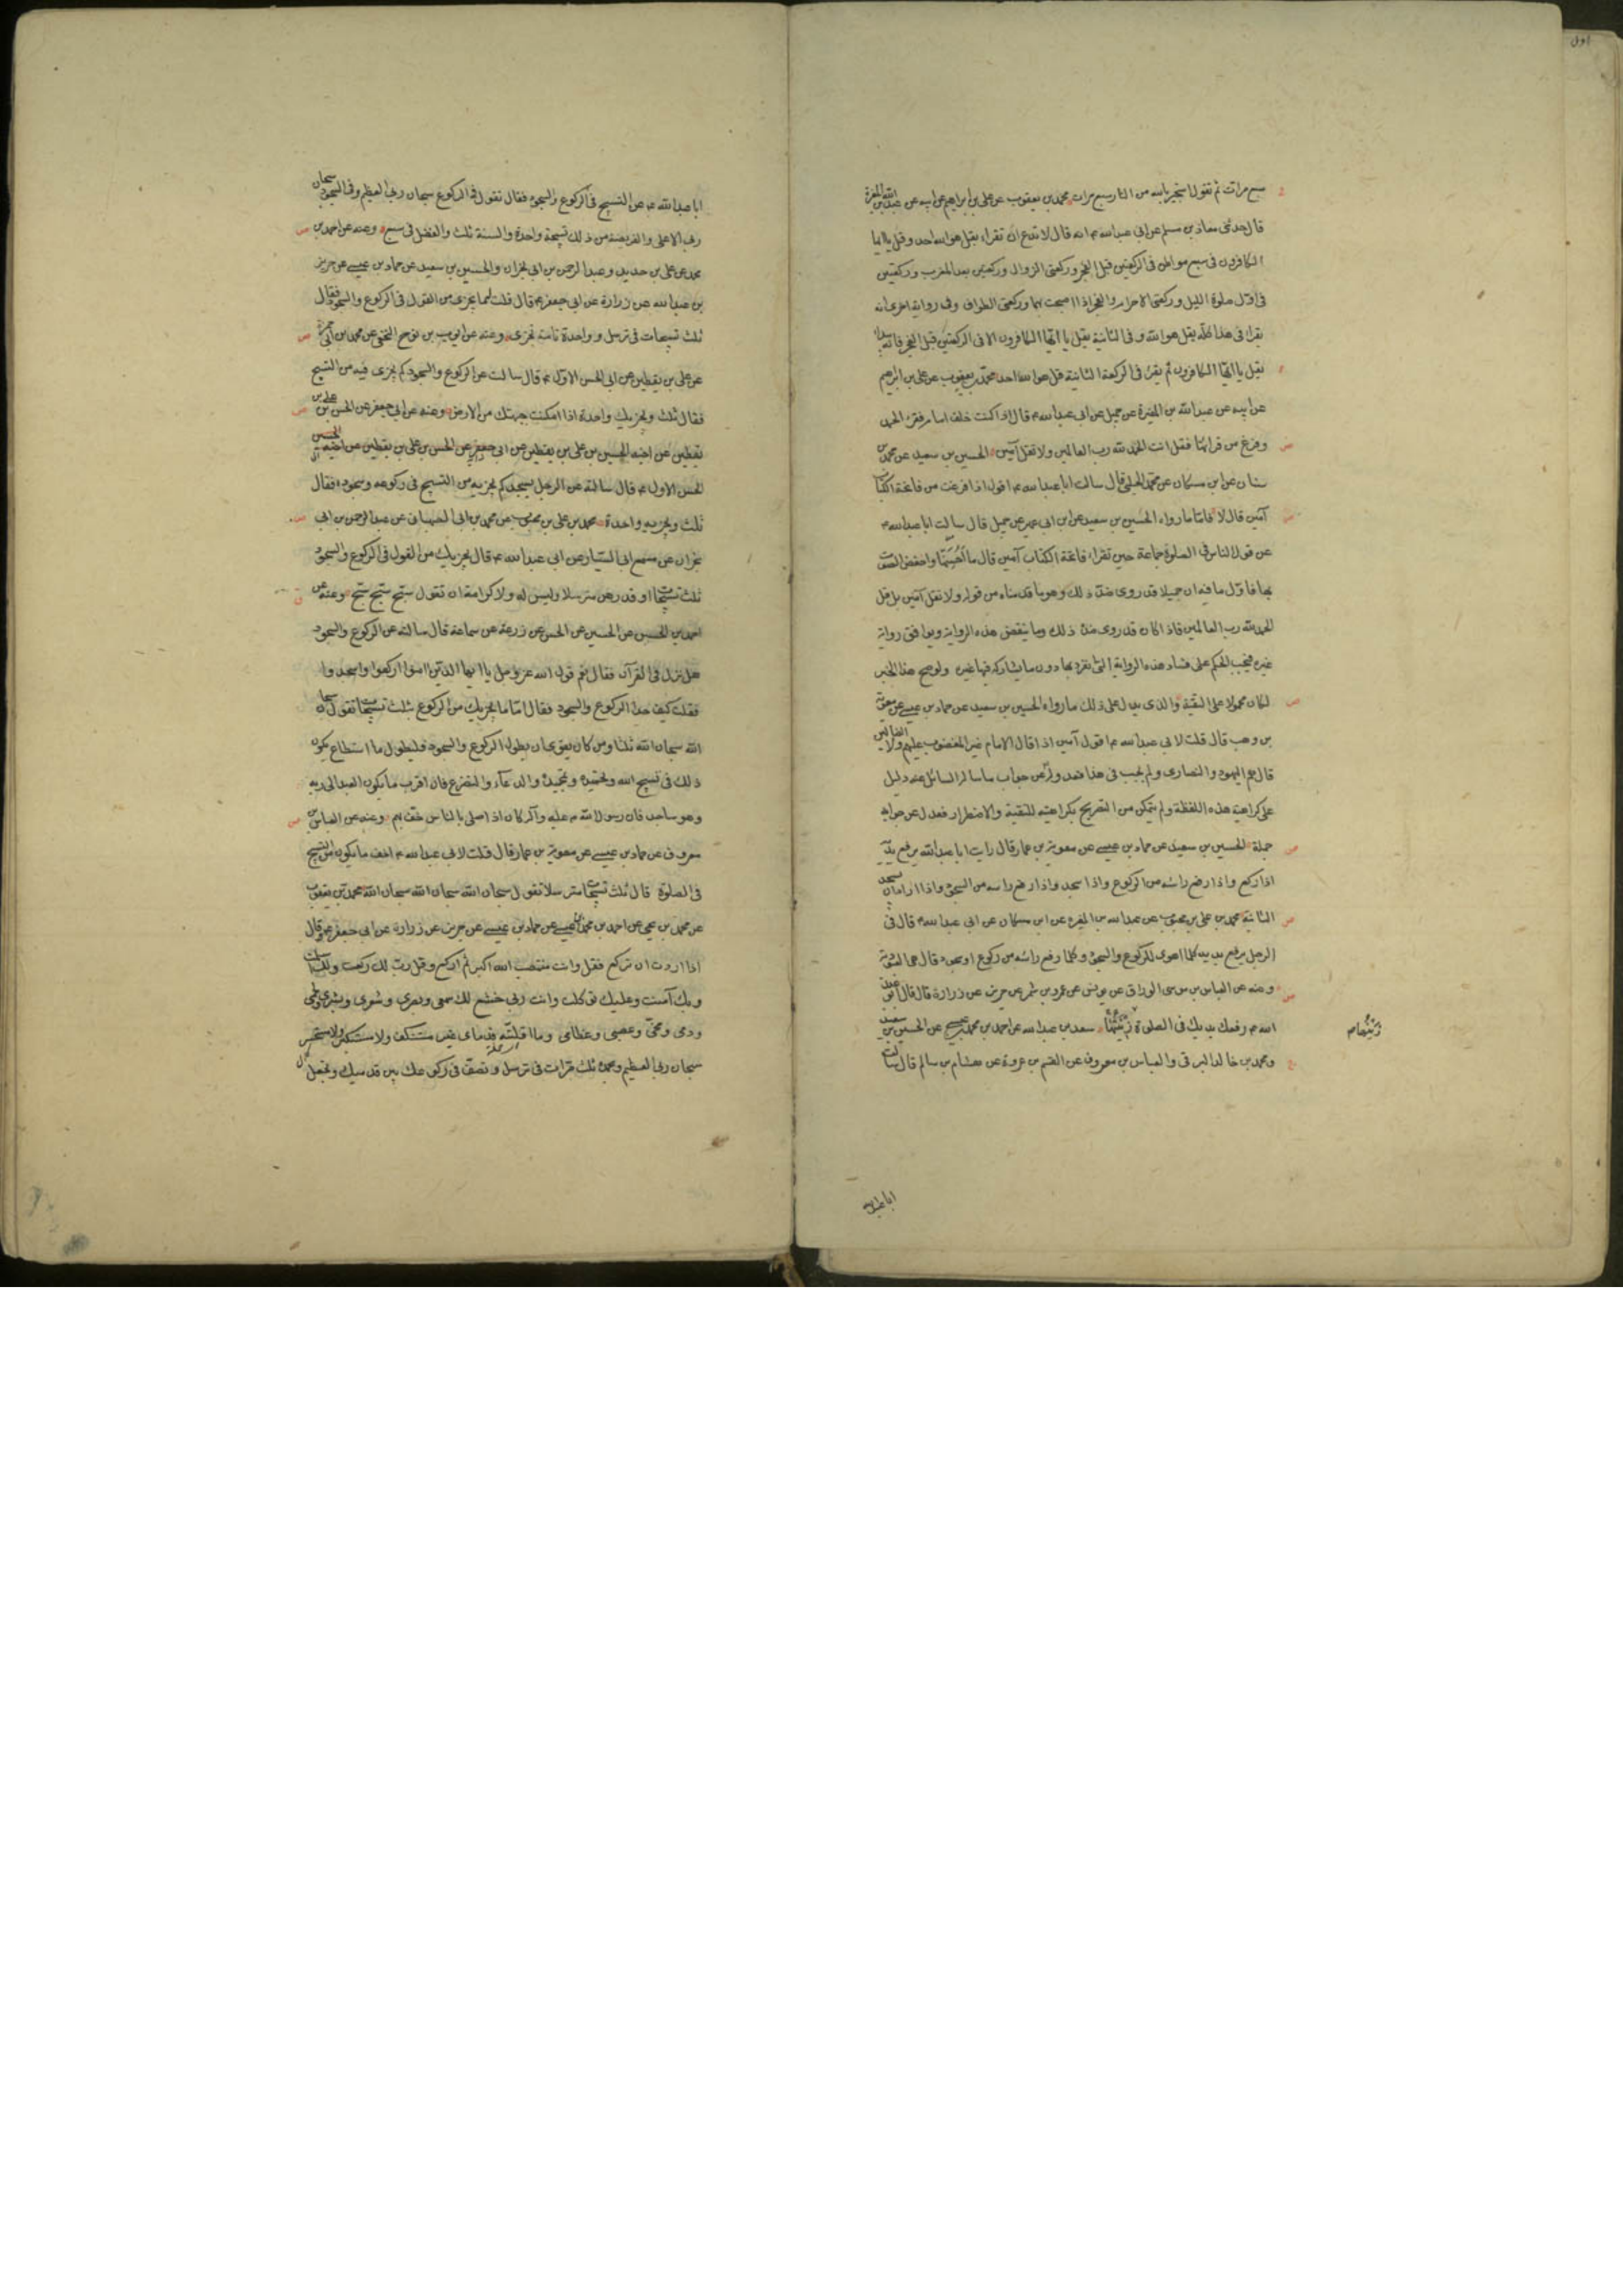 اول
سبع مرات ثم تقول استجير بالله من النار سبع مرات محمد بن يعقوب عن علي بن ابراهيم عن ابيه عن عبد الله بن المغيرة
قال حدثني معاذ بن مسلم عن ابي عبد الله ع انه قال لا تدع ان تقراء بقل هو الله احد وقل يا ايها
الكافرون في سبع مواطن في الركعتين قبل الفجر وركعتي الزوال وركعتين بعد المغرب وركعتين
في اول صلوة الليل وركعتي الاحرام والفجر اذا اصبحت بها وركعتي الطواف وفي رواية اخرى انه
يقرا في هذا كله بقل هو الله وفي الثانية بقل يا ايها الكافرون الا في الركعتين قبل الفجر فانه يبدا
بقل يا ايها الكافرون ثم يقرا في الركعة الثانية قل هو الله احد محمد بن يعقوب عن علي بن ابراهيم
عن ابيه عن عبد الله بن المغيرة عن جميل عن ابي عبد الله ع قال اذا كنت خلف امام فقرء الحمد
وفرغ من قرائتها فقل انت الحمد لله رب العالمين ولا تقل آمين الحسين بن سعيد عن محمد بن
سنان عن ابن مسكان عن محمد الحلبي قال سالت ابا عبد الله ع اقول اذا فرغت من فاتحة الكتاب
آمين قال لا فاما ما رواه الحسين بن سعيد عن ابن ابي عمير عن جميل قال سالت ابا عبد الله ع
عن قول الناس في الصلوة جماعة حين تقراء فاتحة الكتاب آمين قال ما احسنها واخفض الصوت
بها فاول ما فيه ان جميلا قد روى ضد ذلك وهو ما قدمناه من قوله ولا تقل آمين بل قل
الحمد لله رب العالمين فاذا كان قد روى ضد ذلك وما ينقض هذه الرواية ويوافق رواية
غيره فيجب الحكم على فساد هذه الرواية التي تفرد بها دون ما يشاركه فيها غيره ولو صح هذا الخبر
لكان محمولا على التقية والذي يدل على ذلك ما رواه الحسين بن سعيد عن حماد بن عيسى عن معوية
بن وهب قال قلت لابي عبد الله ع اقول آمين اذا قال الامام غير المغضوب عليهم ولا الضالين
قال هم اليهود والنصارى ولم يجب في هذا فعدوله عن جواب ما ساله السائل عنه دليل
على كراهية هذه اللفظة ولم يتمكن من التصريح بكراهيته للتقية والاضطرار فعدل عن جوابه
جملة الحسين بن سعيد عن حماد بن عيسى عن معوية بن عمار قال رايت ابا عبد الله يرفع يديه
اذا ركع واذا رفع راسه من الركوع واذا سجد واذا رفع راسه من السجود واذا اراد ان يسجد
الثانية محمد بن علي بن محبوب عن عبد الله بن المغيرة عن ابن مسكان عن ابي عبد الله ع قال في
الرجل يرفع يديه كلما اهوى للركوع والسجود وكلما رفع راسه من ركوع او سجود قال هي العبودية
وعنه عن العباس بن موسى الوراق عن يونس عن عمرو بن شمر عن حريز عن زرارة قال قال ابو عبد
الله ع رفعك يديك في الصلوة زينتها سعد بن عبد الله عن احمد بن محمد بن عيسى عن الحسين بن سعيد
زينتها ص
ومحمد بن خالد البرقي والعباس بن معروف عن القسم بن عروة عن هشام بن سالم قال سالت
ابا عبد الله
ابا عبد الله ع عن التسبيح في الركوع والسجود فقال تقول في الركوع سبحان ربي العظيم وفي السجود سبحان
ربي الاعلى والفريضة من ذلك تسبيحة واحدة والسنة ثلث والفضل في سبع وعنه عن احمد بن
محمد عن علي بن حديد وعبد الرحمن بن ابي نجران والحسين بن سعيد عن حماد بن عيسى عن حريز
بن عبد الله عن زرارة عن ابي جعفر ع قال قلت له ما يجزى من القول في الركوع والسجود فقال
ثلث تسبيحات في ترسل وواحدة تامة تجزى وعنه عن ايوب بن نوح النخعي عن محمد بن ابي حمزة
عن علي بن يقطين عن ابي الحسن الاول ع قال سالت عن الركوع والسجود كم يجزى فيه من التسبيح
فقال ثلث وتجزيك واحدة اذا امكنت جبهتك من الارض وعنه عن ابي جعفر عن الحسن بن علي بن
يقطين عن اخيه الحسين بن علي بن يقطين عن ابي جعفر عن الحسن بن علي بن يقطين عن اخيه الحسين
الحسن الاول ع قال سالته عن الرجل يسجد كم يجزيه من التسبيح في ركوعه وسجوده فقال
ثلث وتجزيه واحدة محمد بن علي بن محبوب عن محمد بن ابي الصهبان عن عبد الرحمن بن ابي
نجران عن مسمع ابي السيار عن ابي عبد الله ع قال يجزيك من القول في الركوع والسجود
ثلث تسبيحات او قدرهن مترسلا وليس له ولا كرامة ان تقول سبح سبح سبح وعنه عن
احمد بن الحسن عن الحسين عن الحسن عن زرعة عن سماعة قال سالته عن الركوع والسجود
هل نزل في القرآن فقال نعم قول الله عز وجل يا ايها الذين امنوا اركعوا واسجدوا
فقلت كيف حد الركوع والسجود فقال اما ما يجزيك من الركوع فثلث تسبيحات تقول سبحان
الله سبحان الله ثلثا ومن كان يقوى ان يطول الركوع والسجود فليطول ما استطاع يكون
ذلك في تسبيح الله وتحميده وتمجيده والدعاء والتضرع فان اقرب ما يكون العبد الى ربه
وهو ساجد فان رسول الله ص عليه وآله كان اذا صلى بالناس خفف بهم وعنه عن العباس بن
معروف عن حماد بن عيسى عن معوية بن عمار قال قلت لابي عبد الله ع اخف ما يكون من التسبيح
في الصلوة قال ثلث تسبيحات مترسلا تقول سبحان الله سبحان الله سبحان الله محمد بن يعقوب
عن محمد بن يحيى عن احمد بن محمد بن عيسى عن حماد بن عيسى عن حريز عن زرارة عن ابي جعفر ع قال
اذا اردت ان تركع فقل وانت منتصب الله اكبر ثم اركع وقل رب لك ركعت ولك اسلمت
وبك آمنت وعليك توكلت وانت ربي خشع لك سمعي وبصري وشعري وبشري ولحمي
ودمي ومخي وعصبي وعظامي وما اقلته قدماي غير مستنكف ولا مستكبر ولا مستحسر
سبحان ربي العظيم وبحمده ثلث مرات في ترسل وتصف في ركوعك بين قدميك وتجعل